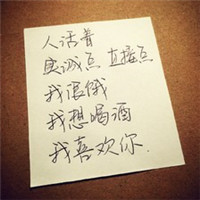 人活着
真诚点 直接点
我很饿
我想喝酒
我喜欢你.